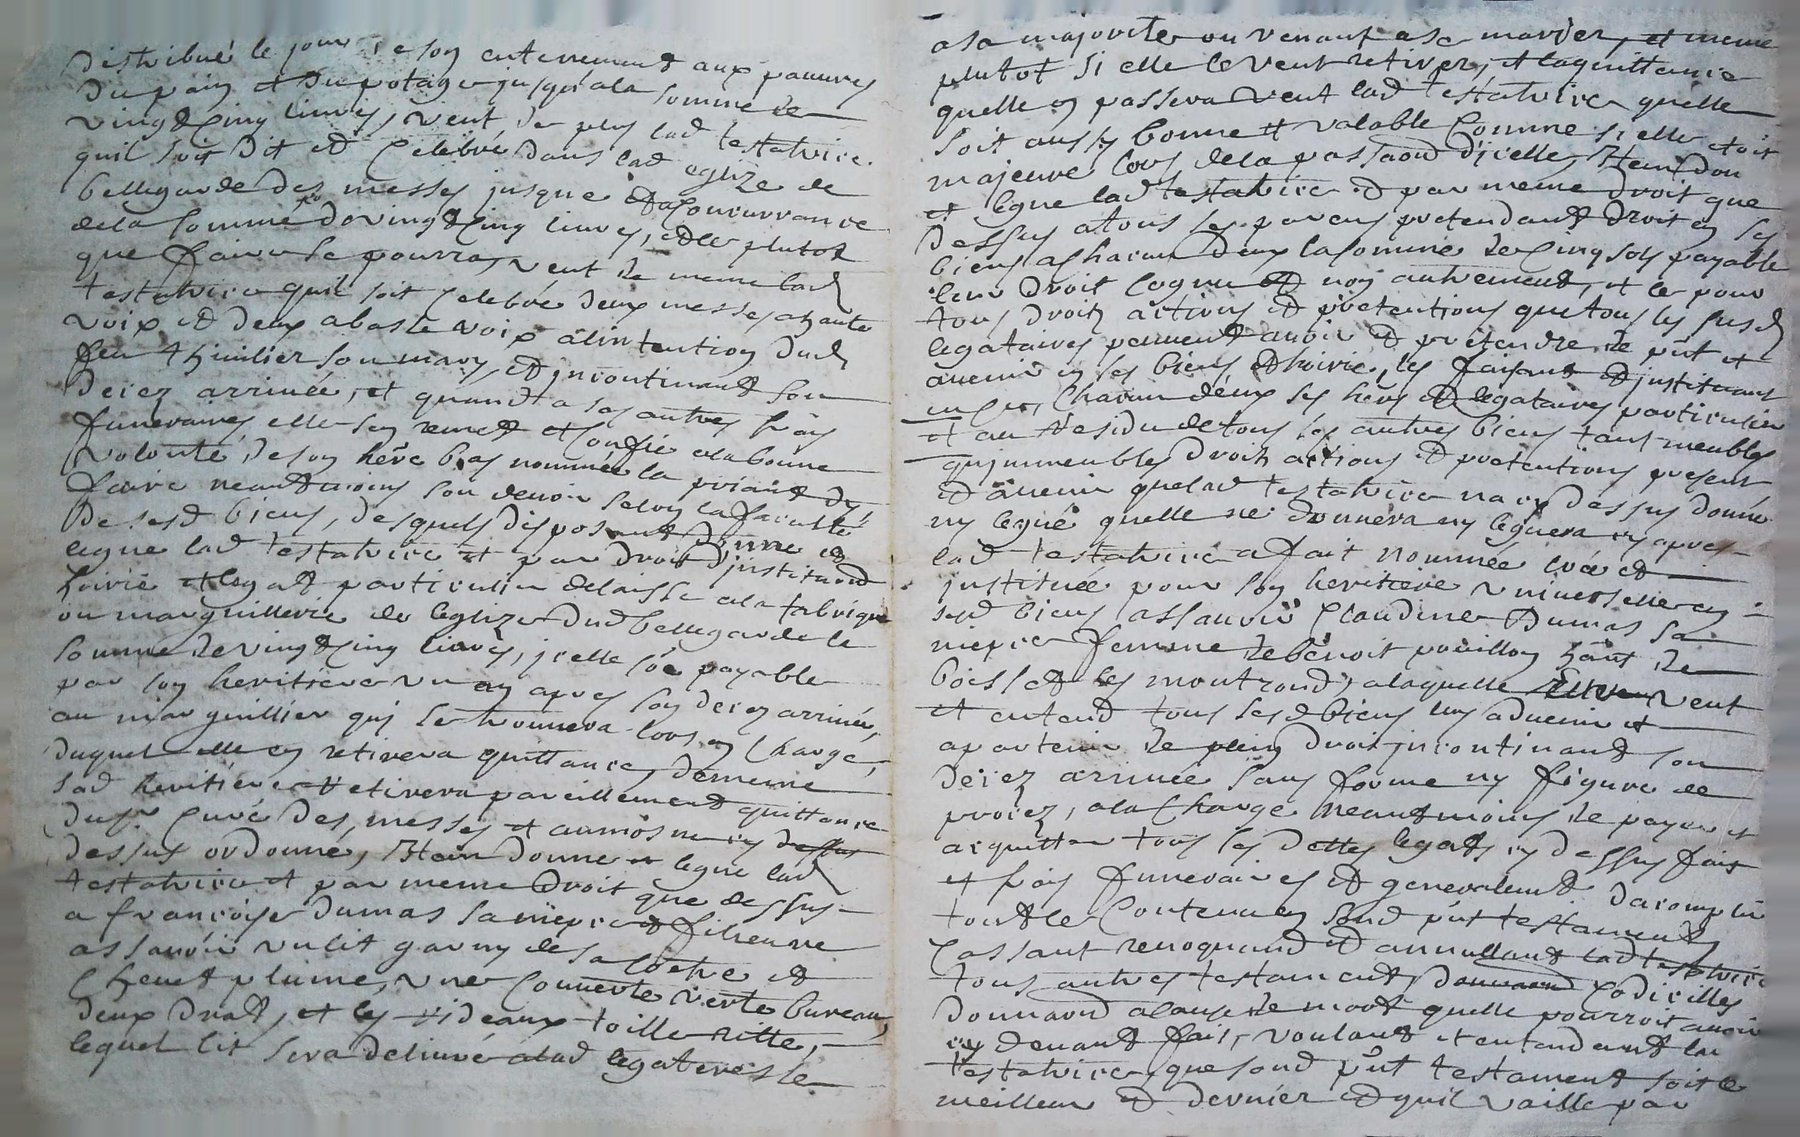 distribué le jour de son enterrement aux pauvres
du pain et du potage jusqu'a la somme de
vingt cinq livres, veut de plus lad testatrice
quil soit dit et celebré dans lad eglize de
bellegarde des messes jusque a concurrance
de la somme de vingt cinq livres, et le plutot
que faire se pourra, veut de meme lad
testatrice quil soit celebré deux messes a haute
voix et deux a basse voix a lintention dud
feu thivilier son mary, et incontinant son
decez arrivée, et quand a ses autres frais
funeraires elle sen remet et confie a la bonne
volonté de son hére bas nommée la priant dy
faire neantmoins son devoir selon la faculté
de sesd biens, desquels disposant donne et
legue lad testatrice et par droit dinstitution
hoirie et legat particulier delaisse a la fabrique
ou marguillerie de leglize dud bellegarde la
somme de vingt cinq livres, icelle so͞e payable
par son heritiere un an apres son decez arrivée,
au marguillier qui se trouvera lors en charge,
duquel elle en retirera quittance, de meme
sad heritiere retirera pareillement quittance
du sr curé des messes et aumosnes cy dessus
dessus ordonné, Item donne et legue lad
testatrice et par meme droit que dessus
a françoise dumas sa niepce et filieunne
assavoir un lit garny de sa coetre et
chevet plume, une couverte verte bureau,
deux drats, et les rideaux toille ritte,
lequel lit sera delivré a lad legateresse
a sa majorité ou venant a se marier, et meme
plutot si elle le veut retirer, et la quittance
quelle en passera veut lad testatrice quelle
soit aussy bonne et valable comme si elle etoit
majeure lors de la passaon d'icelle, Item don
et legue lad testatrice et par meme droit que
dessus a tous ses parens pretendant droit en ses
biens a chacun deux la somme de cinq sols payable
leur droit cognu et non autrement, et ce pour
tous droits actions et pretentions que tous les susd
legataires peuvent avoir et pretendre de p͞nt et
avenir en ses biens et hoirie, les faisant et instituant
en ce, chacun d'eux ses hers et legataires particuliers
et au residu de tous ses autres biens tant meubles
qu'immeubles droits actions et pretentions present
et avenir que lad testatrice na cy dessus donné
ny legué quelle ne donnera ny leguera cy apres
lad testatrice a fait nommée crée et
instituée pour son heritiere universelle en
sesd biens, assavoir Claudine Dumas sa
niepce femme de benoit pouillon hant de
boisset les montrond, a laquelle veut
et entend tous sesd biens luy advenir et
apartenir de plein droit incontinant son
decez arrivée sans forme ny figure de
procez, a la charge neantmoins de payer et
acquitter tous les dettes legats cy dessus fait
et frais funeraires et generalemt d'acomplir
tout le contenu en sond p͞nt testament
cassant revoquand et annullant lad testatrice
tous autres testament, donnaond codicilles
donnaond a cause de mort quelle pourroit avoir
cy devant fait, voulant et entendant lad
testatrice, que sond p͞nt testament soit le
meilleur et dernier et quil vaille par